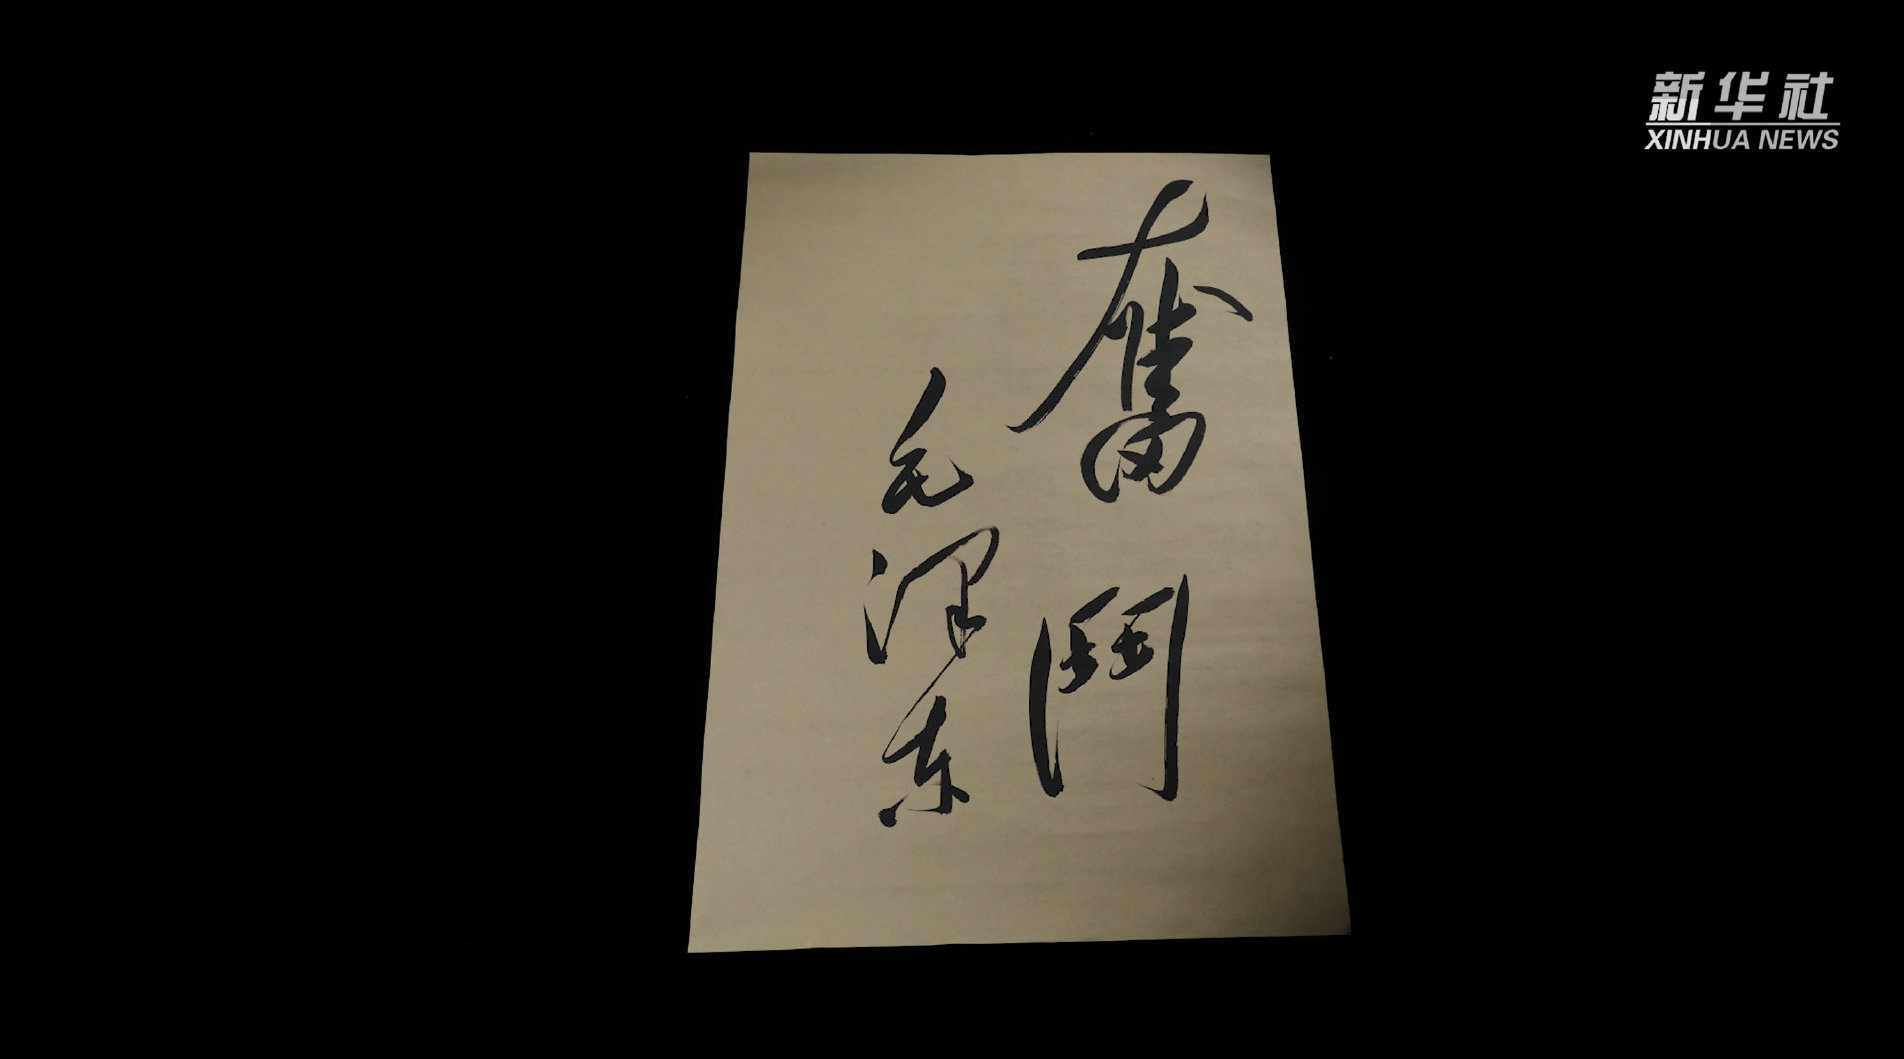 奮鬥
毛泽东
新华社
XINHUA NEWS